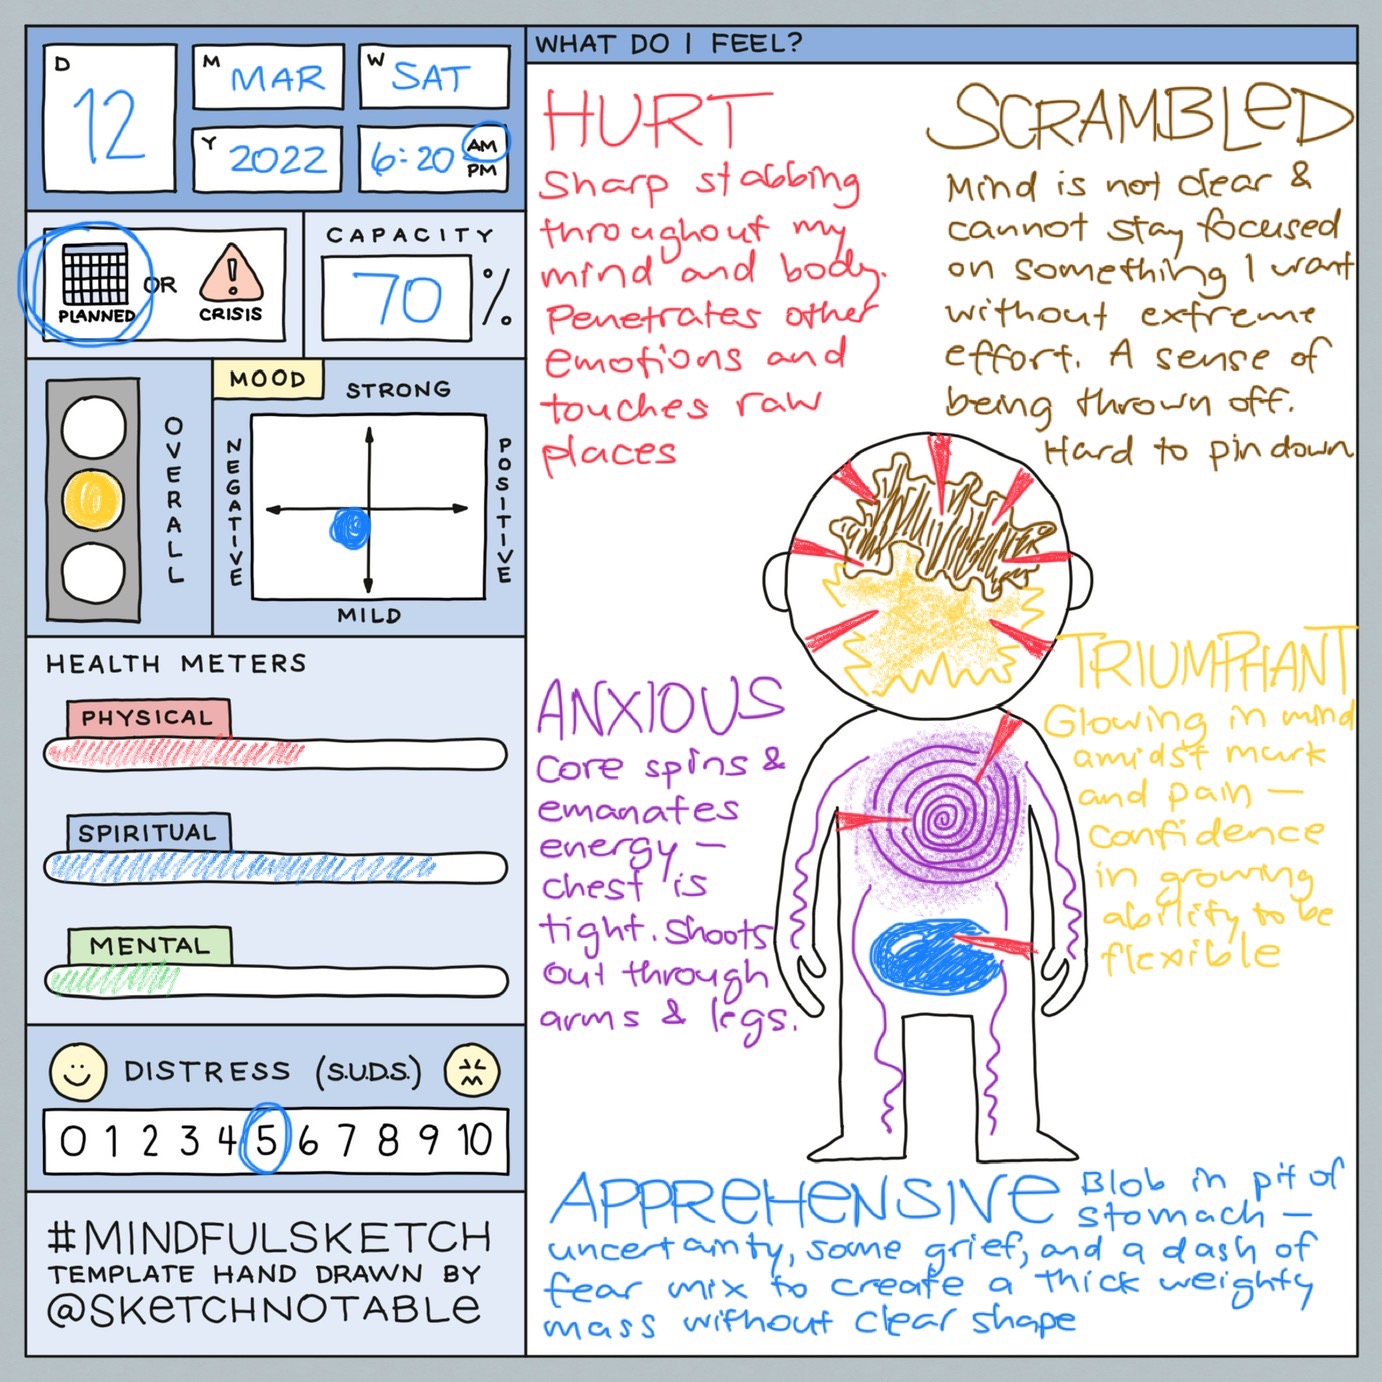 D
12
M
MAR
W
SAT
Y
2022
6:20 AM
PM
PLANNED
OR
CRISIS
CAPACITY
70 %
OVERALL
MOOD
STRONG
NEGATIVE
POSITIVE
MILD
HEALTH METERS
PHYSICAL
SPIRITUAL
MENTAL
DISTRESS (S.U.D.S.)
0 1 2 3 4 5 6 7 8 9 10
#MINDFULSKETCH
TEMPLATE HAND DRAWN BY
@SKETCHNOTABLE
WHAT DO I FEEL?
HURT
Sharp stabbing
throughout my
mind and body.
Penetrates other
emotions and
touches raw
places
SCRAMBLED
Mind is not clear &
cannot stay focused
on something I want
without extreme
effort. A sense of
being thrown off.
Hard to pin down
ANXIOUS
Core spins &
emanates
energy —
chest is
tight. Shoots
out through
arms & legs.
TRIUMPHANT
Glowing in mind
amidst murk
and pain —
confidence
in growing
ability to be
flexible
APPREHENSIVE
Blob in pit of
stomach —
uncertainty, some grief, and a dash of
fear mix to create a thick weighty
mass without clear shape